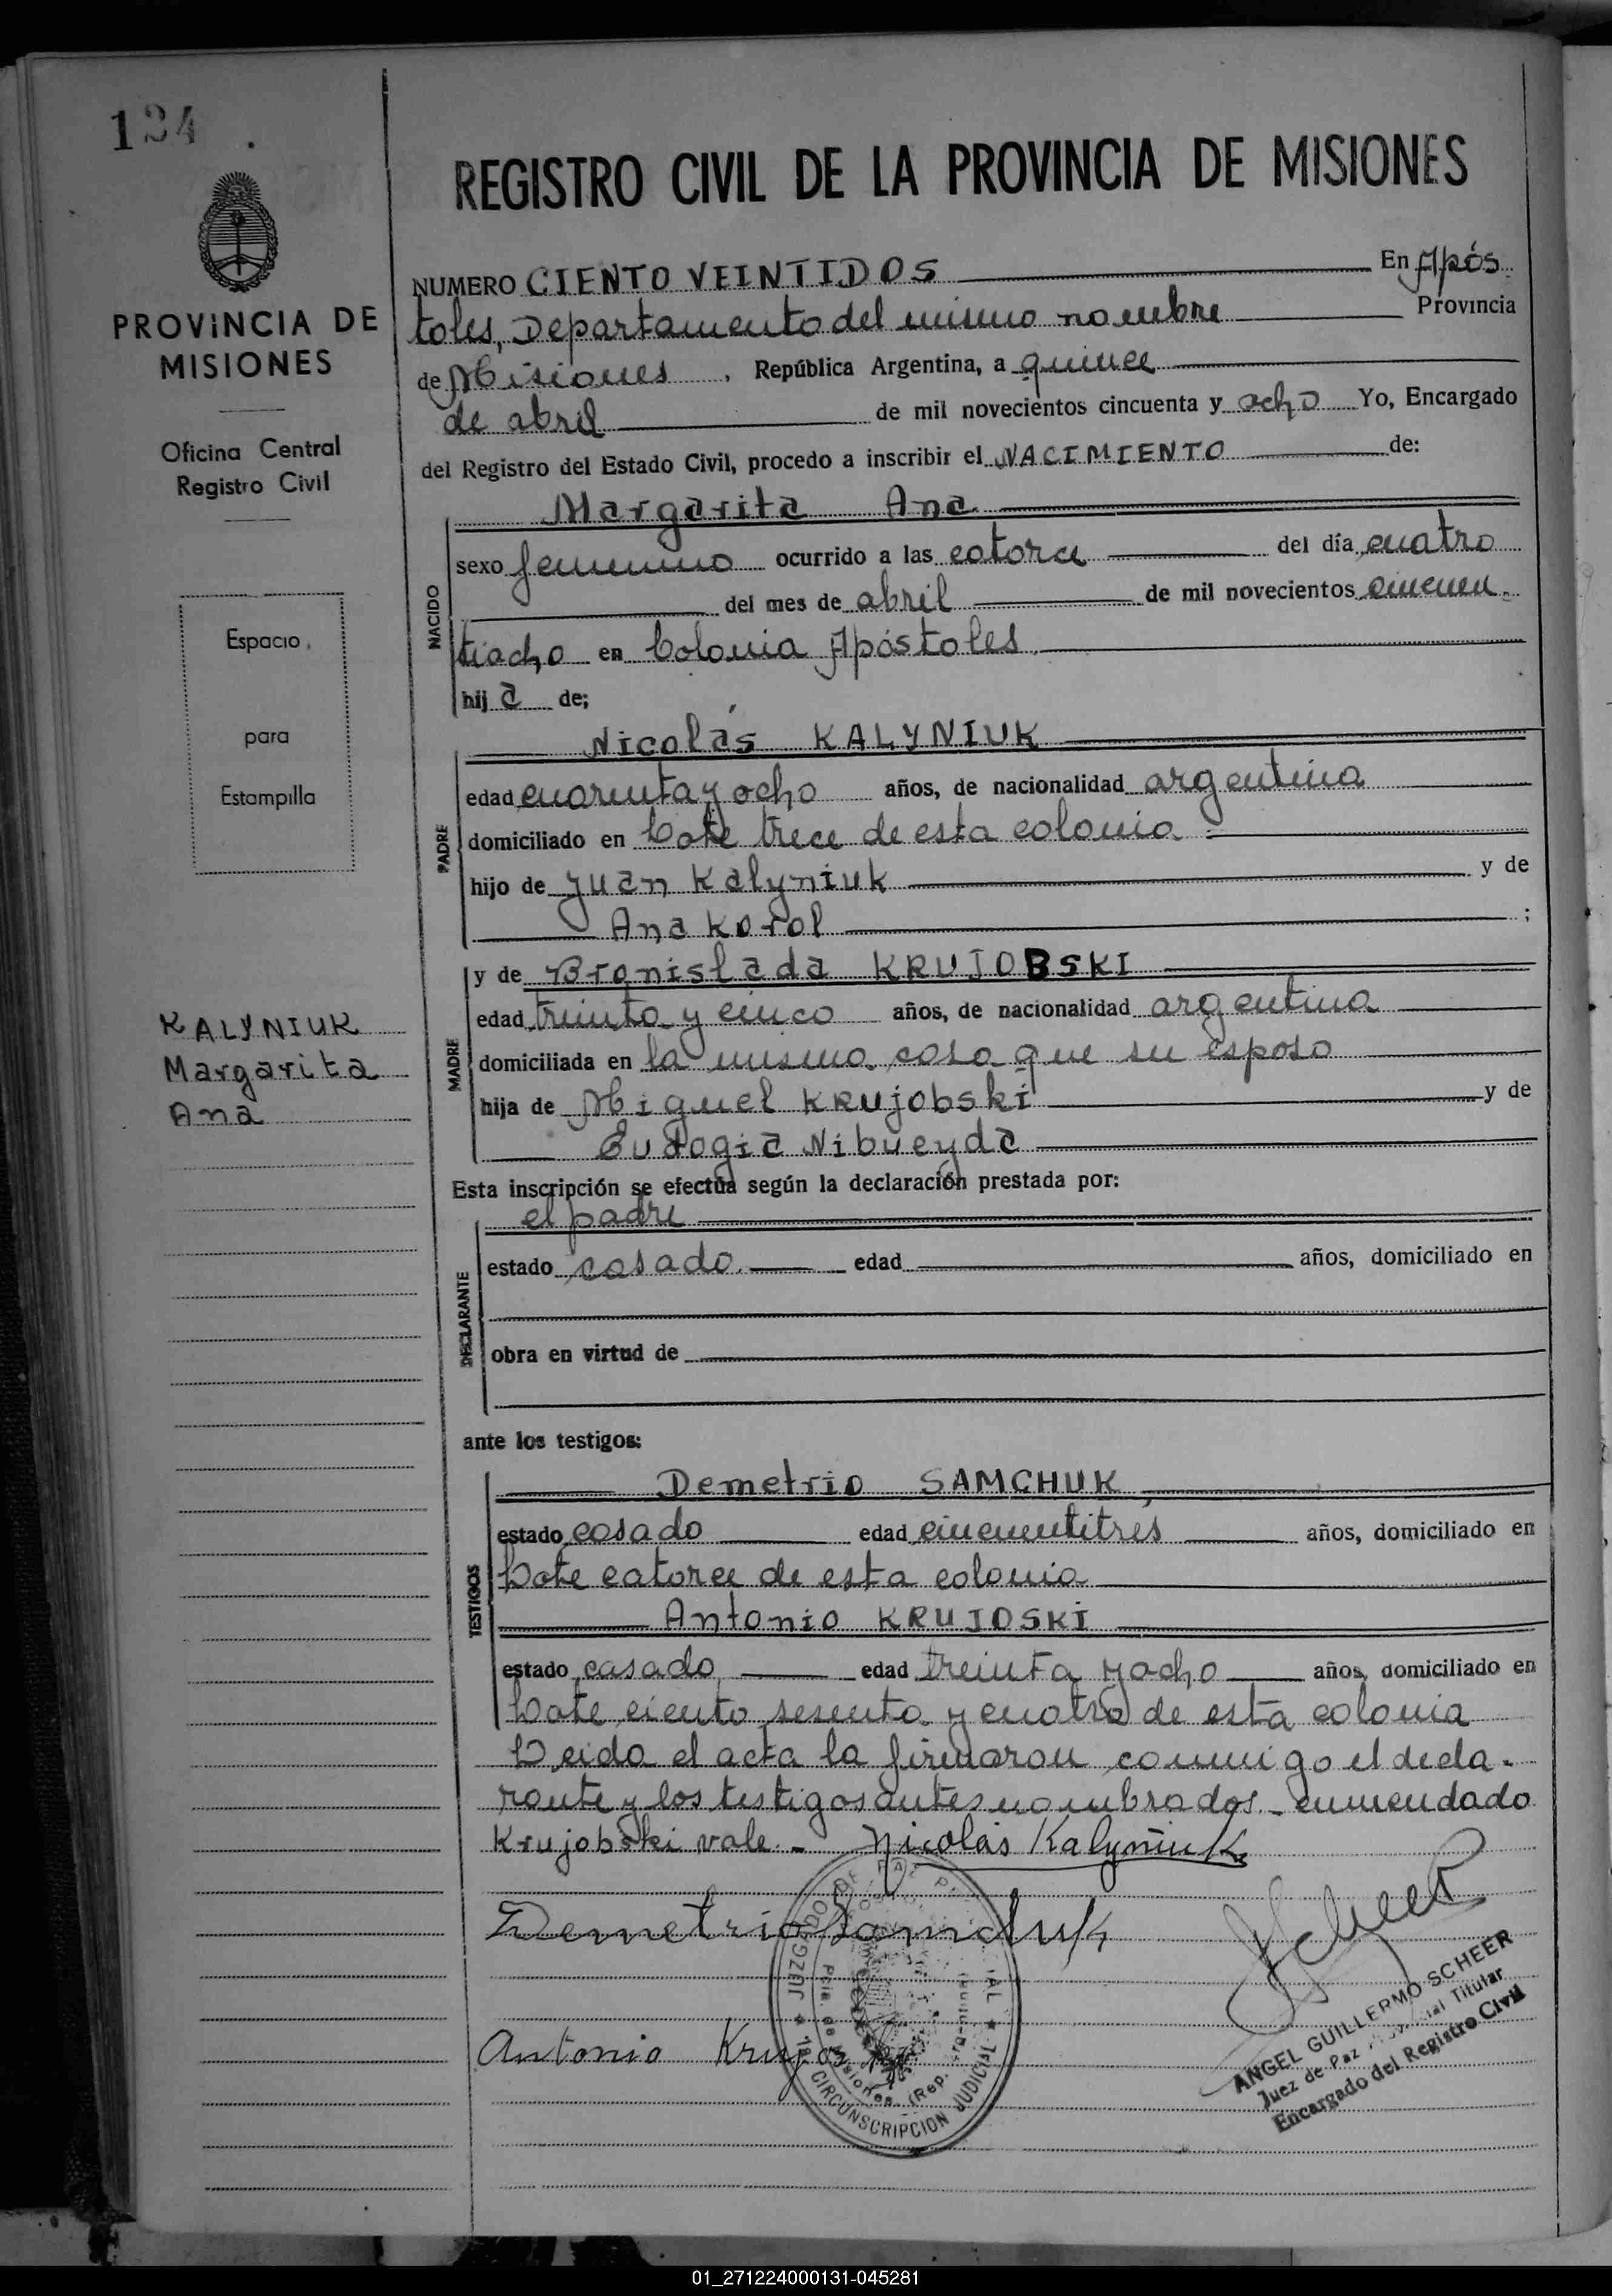 134
REGISTRO CIVIL DE LA PROVINCIA DE MISIONES
PROVINCIA DE
MISIONES
Oficina Central
Registro Civil
Espacio
para
Estampilla
KALYNIUK
Margarita
Ana
NUMERO CIENTO VEINTIDOS En Após
toles, Departamento del mismo nombre Provincia
de Misiones, República Argentina, a quince
de abril de mil novecientos cincuenta y ocho Yo, Encargado
del Registro del Estado Civil, procedo a inscribir el NACIMIENTO de:
NACIDO
Margarita Ana
sexo femenino ocurrido a las catorce del día cuatro
del mes de abril de mil novecientos cincuen-
tiocho en Colonia Apóstoles
hija de;
PADRE
Nicolás KALYNIUK
edad cuarenta y ocho años, de nacionalidad argentina
domiciliado en Lote trece de esta colonia
hijo de Juan Kalyniuk y de
Ana Korol ;
MADRE
y de Bronislada KRUJOBSKI
edad treinta y cinco años, de nacionalidad argentina
domiciliada en la misma casa que su esposo
hija de Miguel Krujobski y de
Eudogia Nibueyda
Esta inscripción se efectúa según la declaración prestada por:
DECLARANTE
el padre
estado casado edad años, domiciliado en
obra en virtud de
ante los testigos:
TESTIGOS
Demetrio SAMCHUK
estado casado edad cincuentitres años, domiciliado en
Lote catorce de esta colonia
Antonio KRUJOSKI
estado casado edad treinta y ocho años, domiciliado en
Lote ciento sesenta y cuatro de esta colonia
Leida el acta la firmaron conmigo el decla-
rante y los testigos antes nombrados.- enmendado
Krujobski vale.- Nicolás Kalyniuk
Demetrio Samchuk
Antonio Krujoski
JUZGADO DE PAZ
CIRCUNSCRIPCION JUDICIAL
Scheer
ANGEL GUILLERMO SCHEER
Juez de Paz Titular
Encargado del Registro Civil
01_271224000131-045281